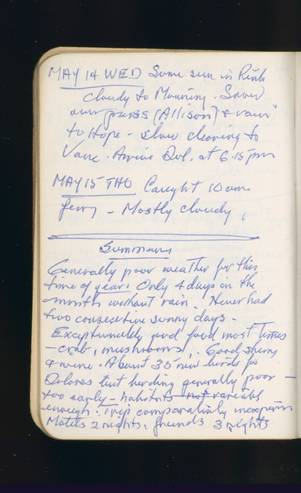 MAY 14 WED Some sun in Pink
cloudy to Manning. Snow
over pass (Allison) & rain
to Hope - slow clearing to
Vanc. Arrive Bvl. at 6.15 pm
MAY 15 THU Caught 10 am
ferry - Mostly cloudy.
Summary
Generally poor weather for this
time of year. Only 4 days on the
month without rain. Never had
two consecutive sunny days.
Exceptionally good food most times
- crab, mushrooms, Good sherry
& wine. About 30 new birds for
Dolores but birding generally poor -
too early - habitats not variable
enough. Trip comparatively inexpensive
Motels 2 nights, friends 3 nights